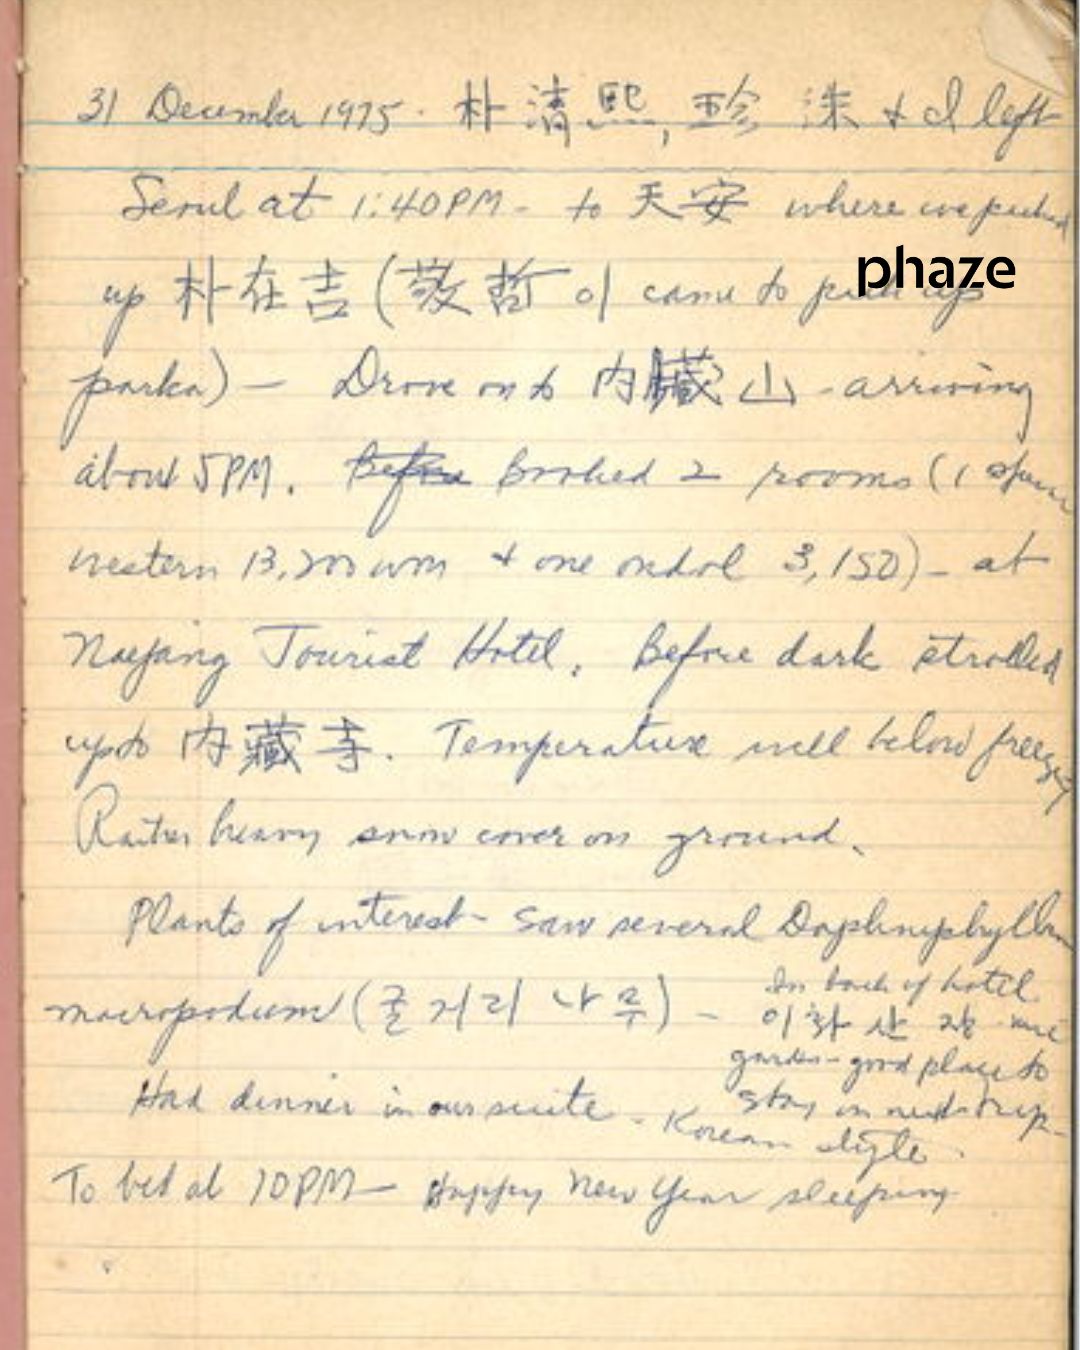 31 December 1975. 朴清熙, 珍洙 & I left
Seoul at 1:40PM - to 天安 where we picked
up 朴在吉 (敬哲이 came to pick up
phaze
parka) - Drove on to 内臓山 - arriving
about 5PM. Before Booked 2 rooms (1
western 13,200 won & one ondol 3,150) - at
Naejang Tourist Hotel. Before dark strolled
up to 内藏寺. Temperature well below freezing
Rather heavy snow cover on ground.
Plants of interest - Saw several Daphniphyllum
macropodum (굴거리 나무) -
In back of hotel
이화산장 nice
garden - good place to
stay on next trip -
Korean style.
Had dinner in our suite -
To bed at 10PM - Happy New Year sleeping